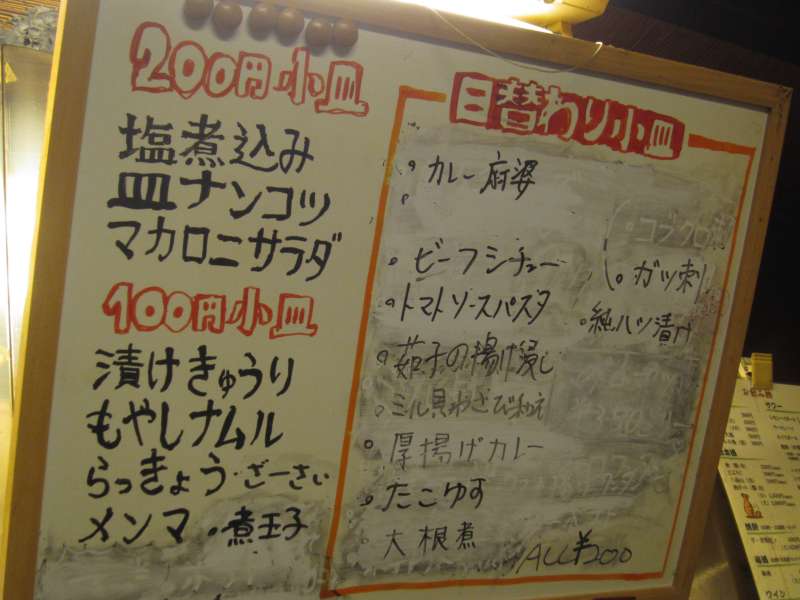 200円小皿
塩煮込み
皿ナンコツ
マカロニサラダ
100円小皿
漬けきゅうり
もやしナムル
らっきょう・ざーさい
メンマ・煮玉子
日替わり小皿
・カレー麻婆
・ビーフシチュー
・トマトソースパスタ
・茄子の揚げ浸し
・ミル貝わさび和え
・厚揚げカレー
・たこゆず
・大根煮
・コブクロ刺
・ガツ刺
・純ハツ漬け
ALL¥200
サワー
ワイン